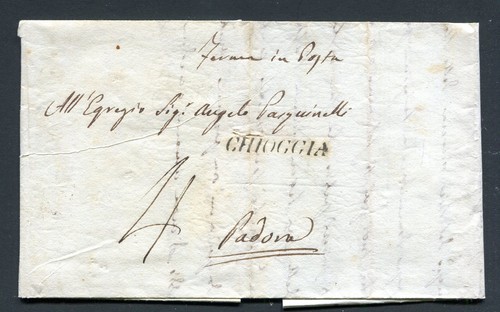 Ferma in Posta
All' Egregio Sigr. Angelo Pasquinelli
CHIOGGIA
4
Padova